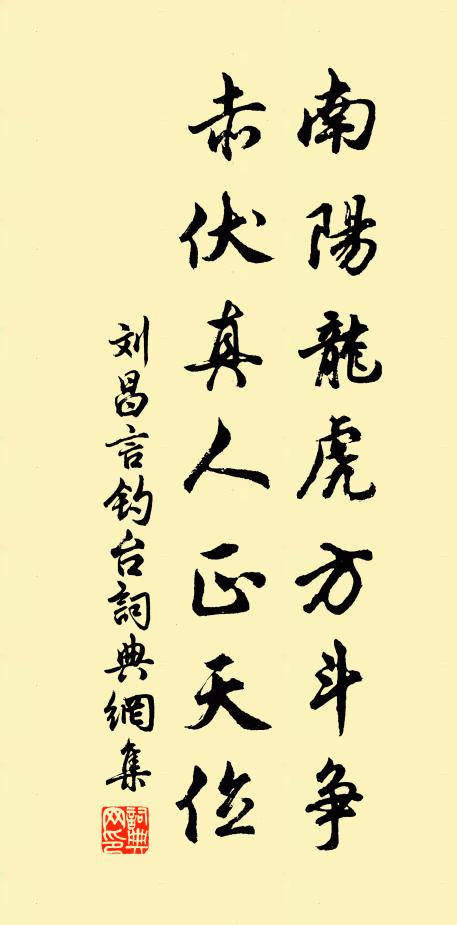 南陽龍虎方斗争
赤伏真人正天位
刘昌言钓台詞典網集
詞典网印